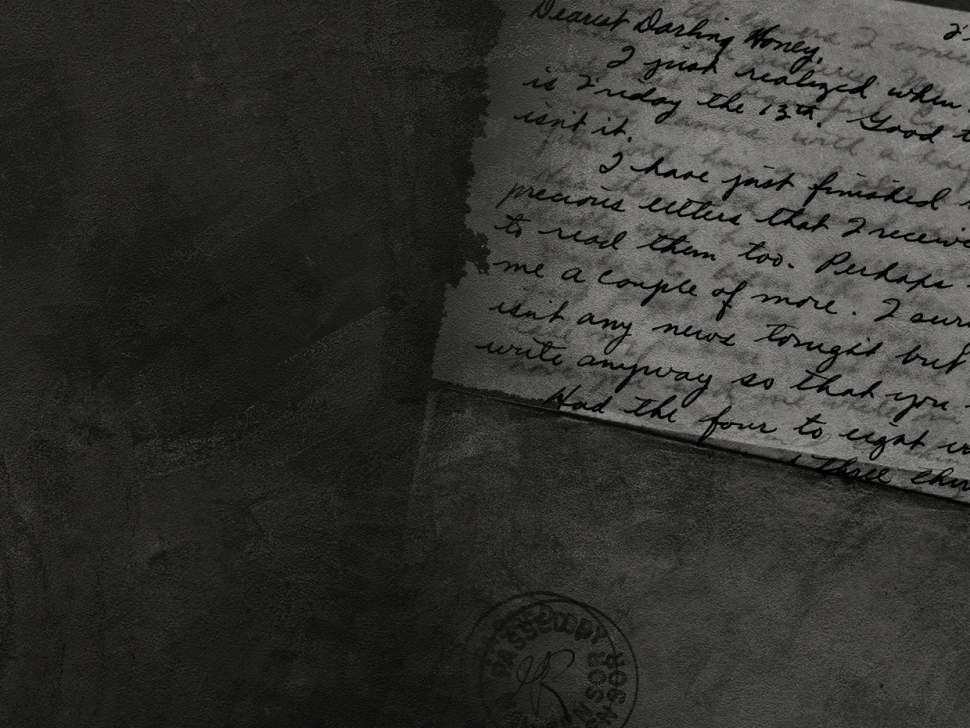 Dearest Darling Honey,
I just realized when
is Friday the 13th. Good
isn't it.
I have just finished
precious letters that I
to read them too. Perhaps
me a couple of more. I
isn't any news tonight but
write anyway so that you
Had the four to eight
three
PASSED BY